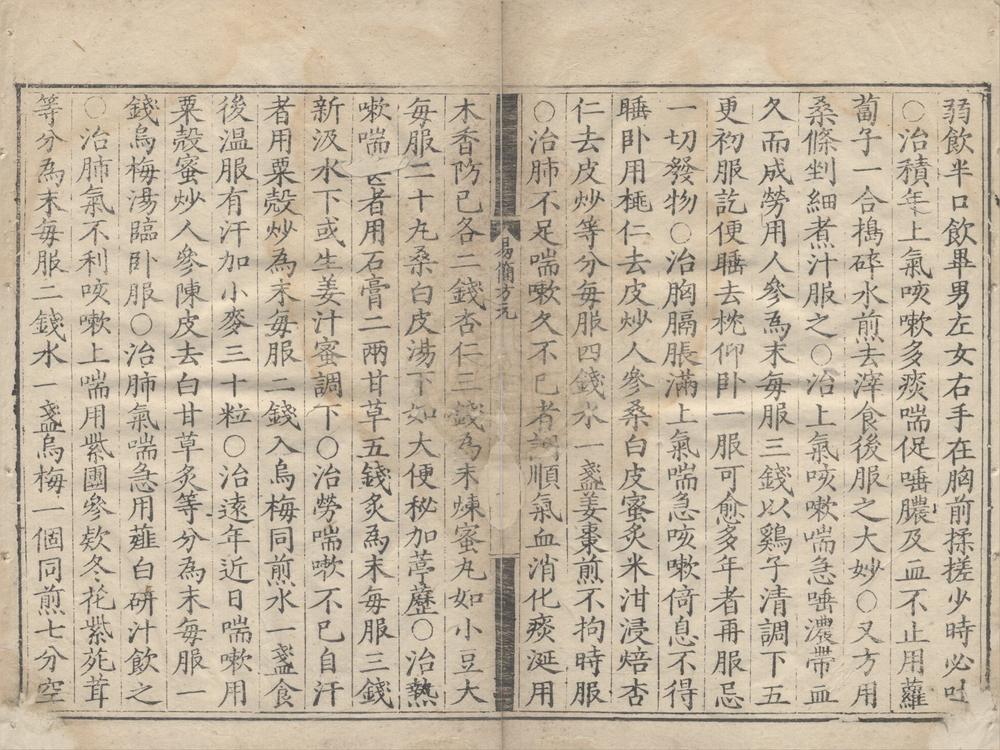 弱飲半口飲畢男左女右手在胸前揉搓少時必吐
○治積年上氣咳嗽多痰喘促唾膿及血不止用蘿
蔔子一合搗碎水煎去滓食後服之大妙○又方用
桑條剉細煮汁服之○治上氣咳嗽喘急唾濃帶血
久而成勞用人參為末每服三錢以鷄子清調下五
更初服訖便睡去枕仰卧一服可愈多年者再服忌
一切發物○治胸膈脹滿上氣喘急咳嗽倚息不得
睡卧用桃仁去皮炒人參桑白皮蜜炙米泔浸焙杏
仁去皮炒等分每服四錢水一盞姜棗煎不拘時服
○治肺不足喘嗽久不已者調順氣血消化痰涎用
易簡方九
木香防已各二錢杏仁三錢為末煉蜜丸如小豆大
每服二十丸桑白皮湯下如大便秘加葶藶○治熱
嗽喘者用石膏二兩甘草五錢炙為末每服三錢
新汲水下或生姜汁蜜調下○治勞喘嗽不已自汗
者用粟殼炒為末每服二錢入烏梅同煎水一盞食
後溫服有汗加小麥三十粒○治遠年近日喘嗽用
粟殼蜜炒人參陳皮去白甘草炙等分為末每服一
錢烏梅湯臨卧服○治肺氣喘急用薤白研汁飲之
○治肺氣不利咳嗽上喘用紫團參欵冬花紫菀茸
等分為末每服二錢水一盞烏梅一個同煎七分空